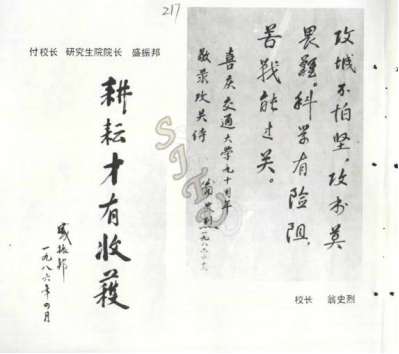 217
付校长 研究生院院长 盛振邦
耕耘才有收获
盛振邦
一九八六年四月
攻城不怕坚，攻书莫
畏难。科学有险阻，
苦战能过关。
喜庆交通大学九十周年
敬录攻关诗
翁史烈
校长 翁史烈
SJTU